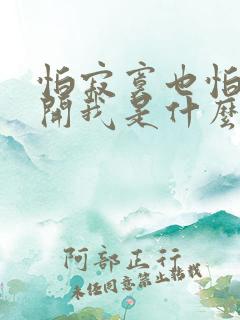 怕寂寞也怕
開我是什麼
阿部正行
未經同意禁止轉載